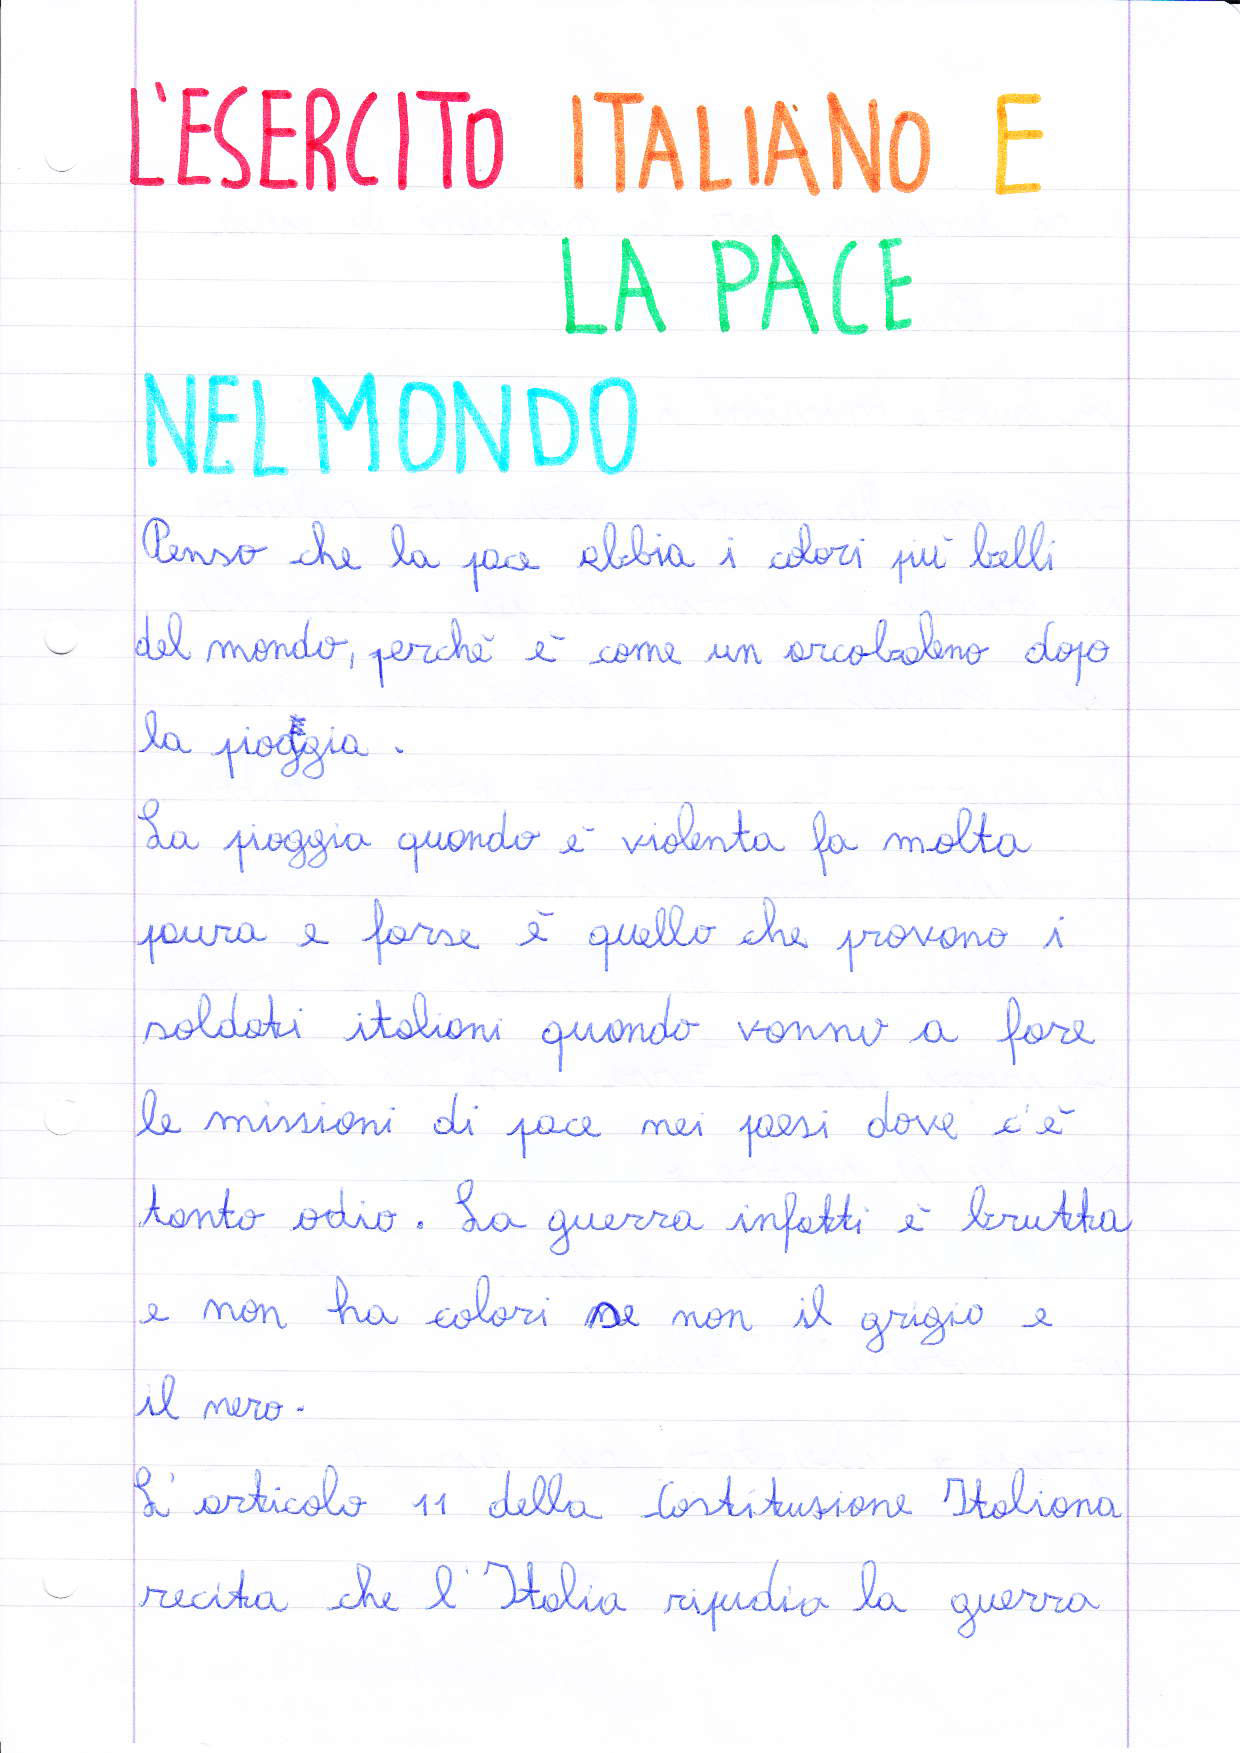 L'ESERCITO ITALIANO E
LA PACE
NEL MONDO
Penso che la pace abbia i colori più belli
del mondo, perchè è come un arcobaleno dopo
la pioggia.
La pioggia quando è violenta fa molta
paura e forse è quello che provano i
soldati italiani quando vanno a fare
le missioni di pace nei paesi dove c'è
tanto odio. La guerra infatti è brutta
e non ha colori se non il grigio e
il nero.
L'articolo 11 della Costituzione Italiana
recita che l'Italia ripudia la guerra